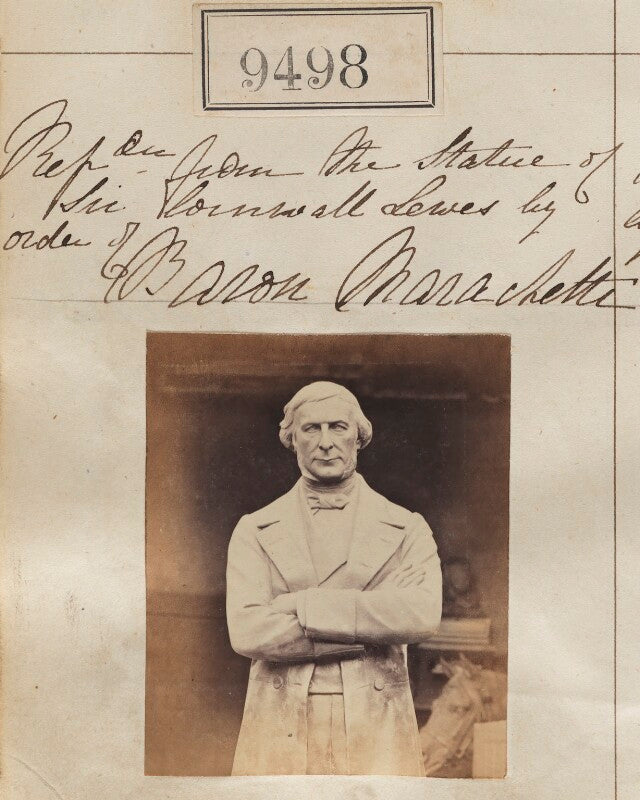 9498
Rep on from the Statue of
Sir Cornwall Lewes by
order of
Baron Marachetti